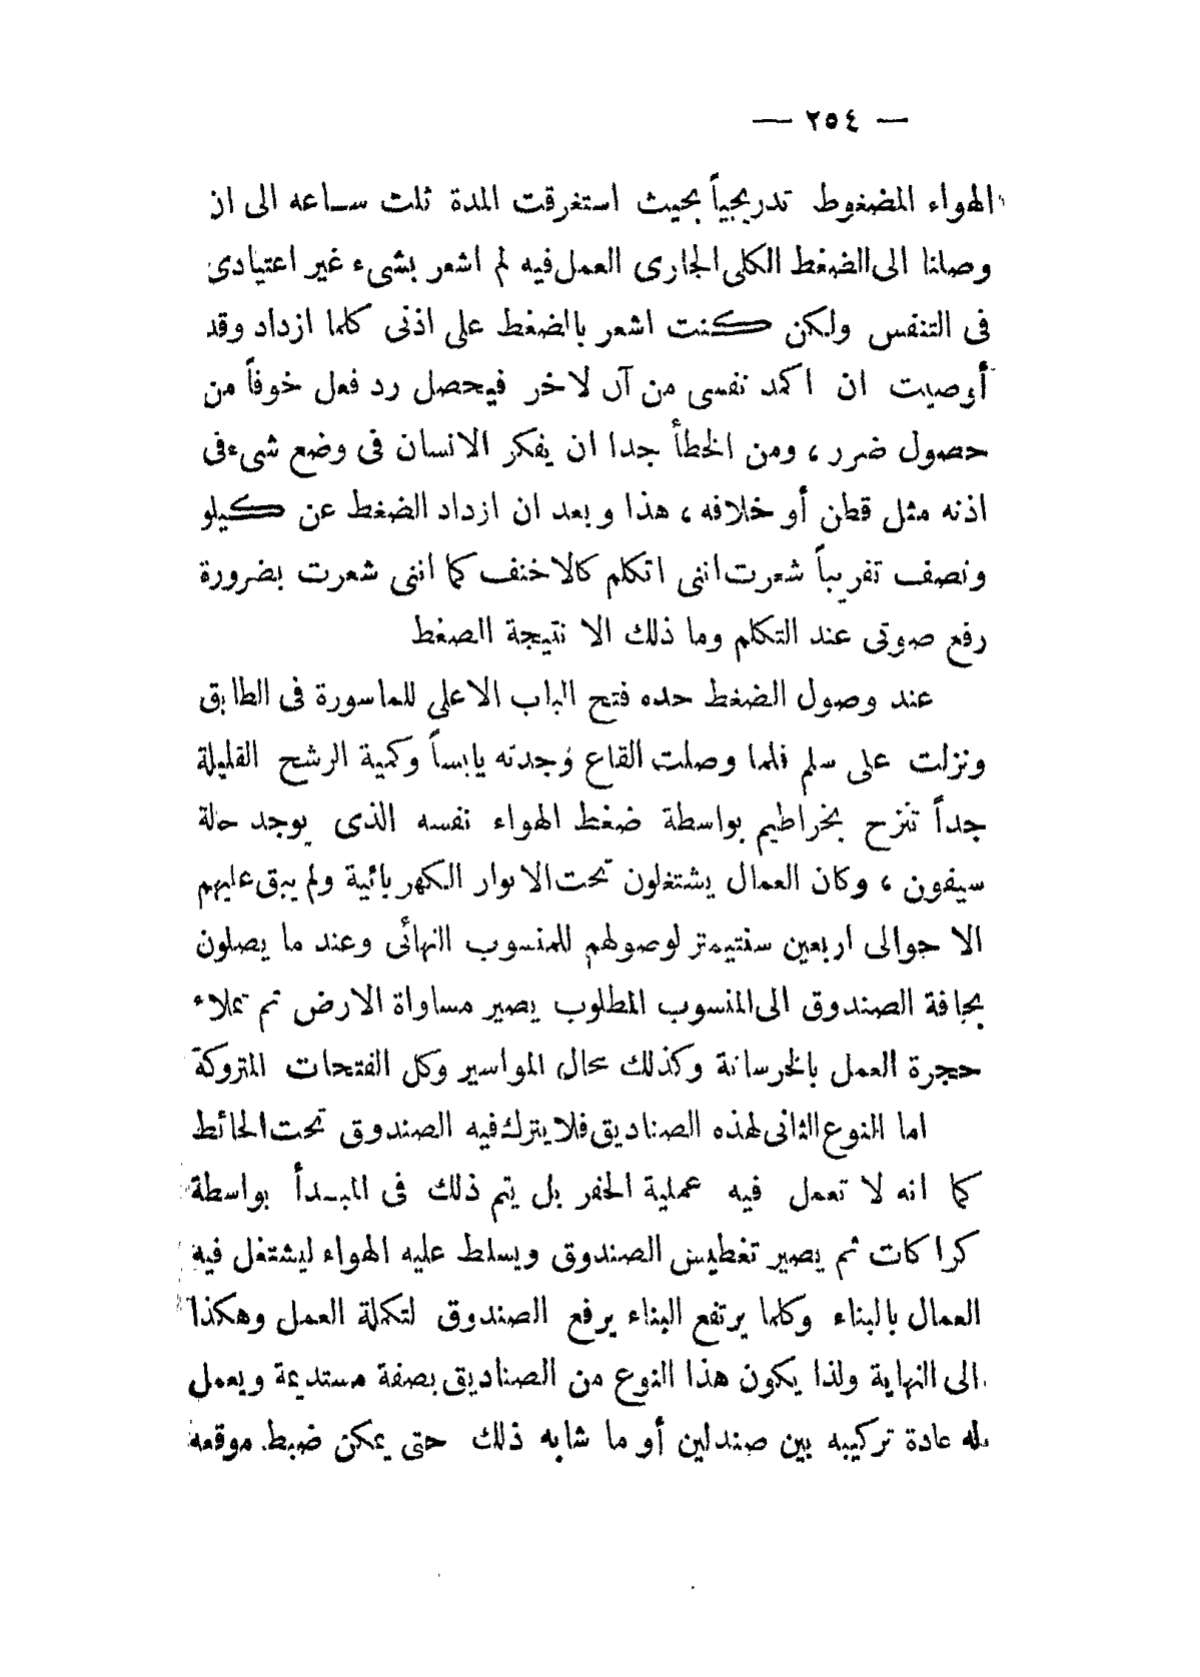 — ٢٥٤ —
الهواء المضغوط تدريجياً بحيث استغرقت المدة ثلث ساعه الى ان
وصلنا الى الضغط الكلى الجارى العمل فيه لم اشعر بشىء غير اعتيادى
فى التنفس ولكن كنت اشعر بالضغط على اذنى كلما ازداد وقد
أوصيت ان اكمد نفسى من آن لاخر فيحصل رد فعل خوفاً من
حصول ضرر ، ومن الخطأ جدا ان يفكر الانسان فى وضع شىء فى
اذنه مثل قطن أو خلافه ، هذا وبعد ان ازداد الضغط عن كيلو
ونصف تقريباً شعرت اننى اتكلم كالاخنف كما اننى شعرت بضرورة
رفع صوتى عند التكلم وما ذلك الا نتيجة الضغط
عند وصول الضغط حده فتح الباب الاعلى للماسورة فى الطابق
ونزلت على سلم فلما وصلت القاع وجدته يابساً وكمية الرشح القليلة
جداً تنزح بخراطيم بواسطة ضغط الهواء نفسه الذى يوجد حالة
سيفون ، وكان العمال يشتغلون تحت الانوار الكهربائية ولم يبق عليهم
الا حوالى اربعين سنتيمتر لوصولهم للمنسوب النهائى وعند ما يصلون
بحافة الصندوق الى المنسوب المطلوب يصير مساواة الارض ثم تملاء
حجرة العمل بالخرسانة وكذلك محال المواسير وكل الفتحات المتروكة
اما النوع الثانى لهذه الصناديق فلا يترك فيه الصندوق تحت الحائط
كما انه لا تعمل فيه عملية الحفر بل يتم ذلك فى المبدأ بواسطة
كراكات ثم يصير تغطيس الصندوق ويسلط عليه الهواء ليشتغل فيه
العمال بالبناء وكلما يرتفع البناء يرفع الصندوق لتكملة العمل وهكذا
الى النهاية ولذا يكون هذا النوع من الصناديق بصفة مستديمة ويعمل
له عادة تركيبه بين صندلين أو ما شابه ذلك حتى يمكن ضبط موقعه